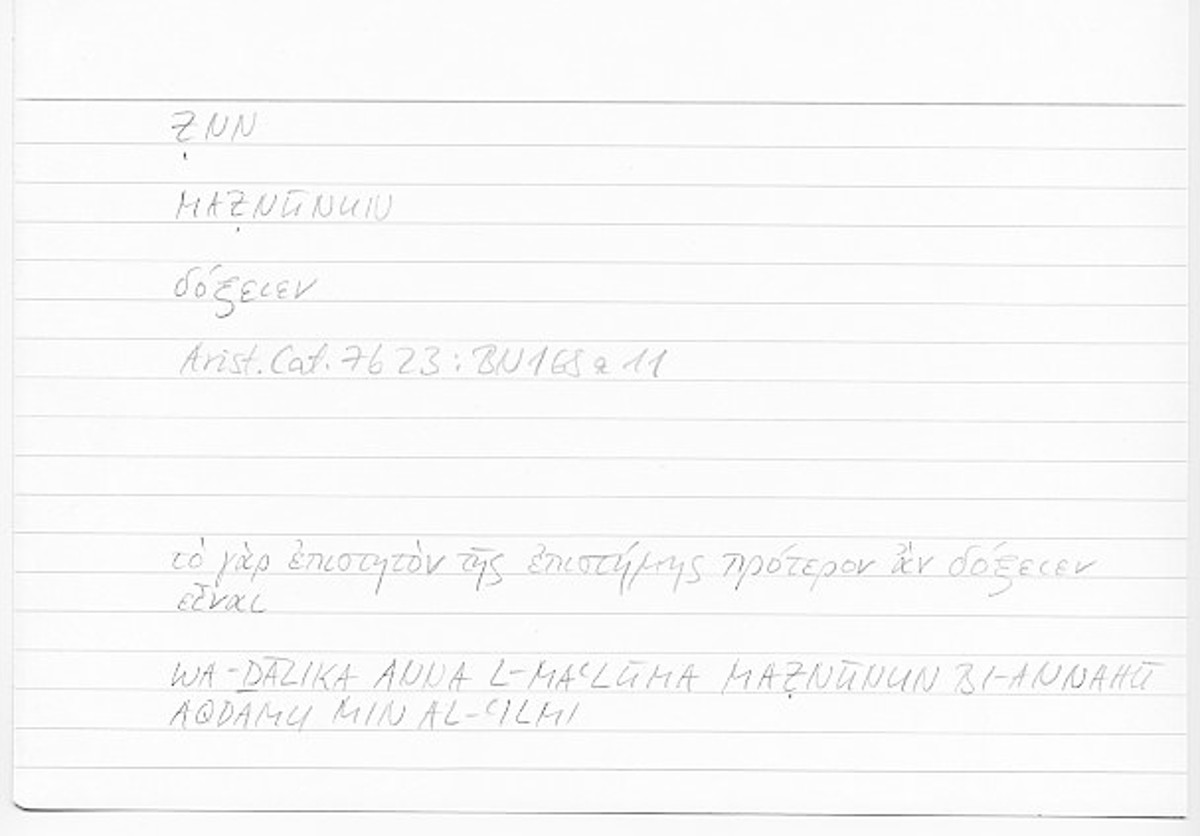 ẒNN
MAẒNŪNUN
δόξειεν
Arist. Cat. 7b23 : BN 168a11
τὸ γὰρ ἐπιστητὸν τῆς ἐπιστήμης πρότερον ἂν δόξειεν
εἶναι
WA-ḎĀLIKA ANNA L-MAʿLŪMA MAẒNŪNUN BI-ANNAHŪ
AQDAMU MIN AL-ʿILMI